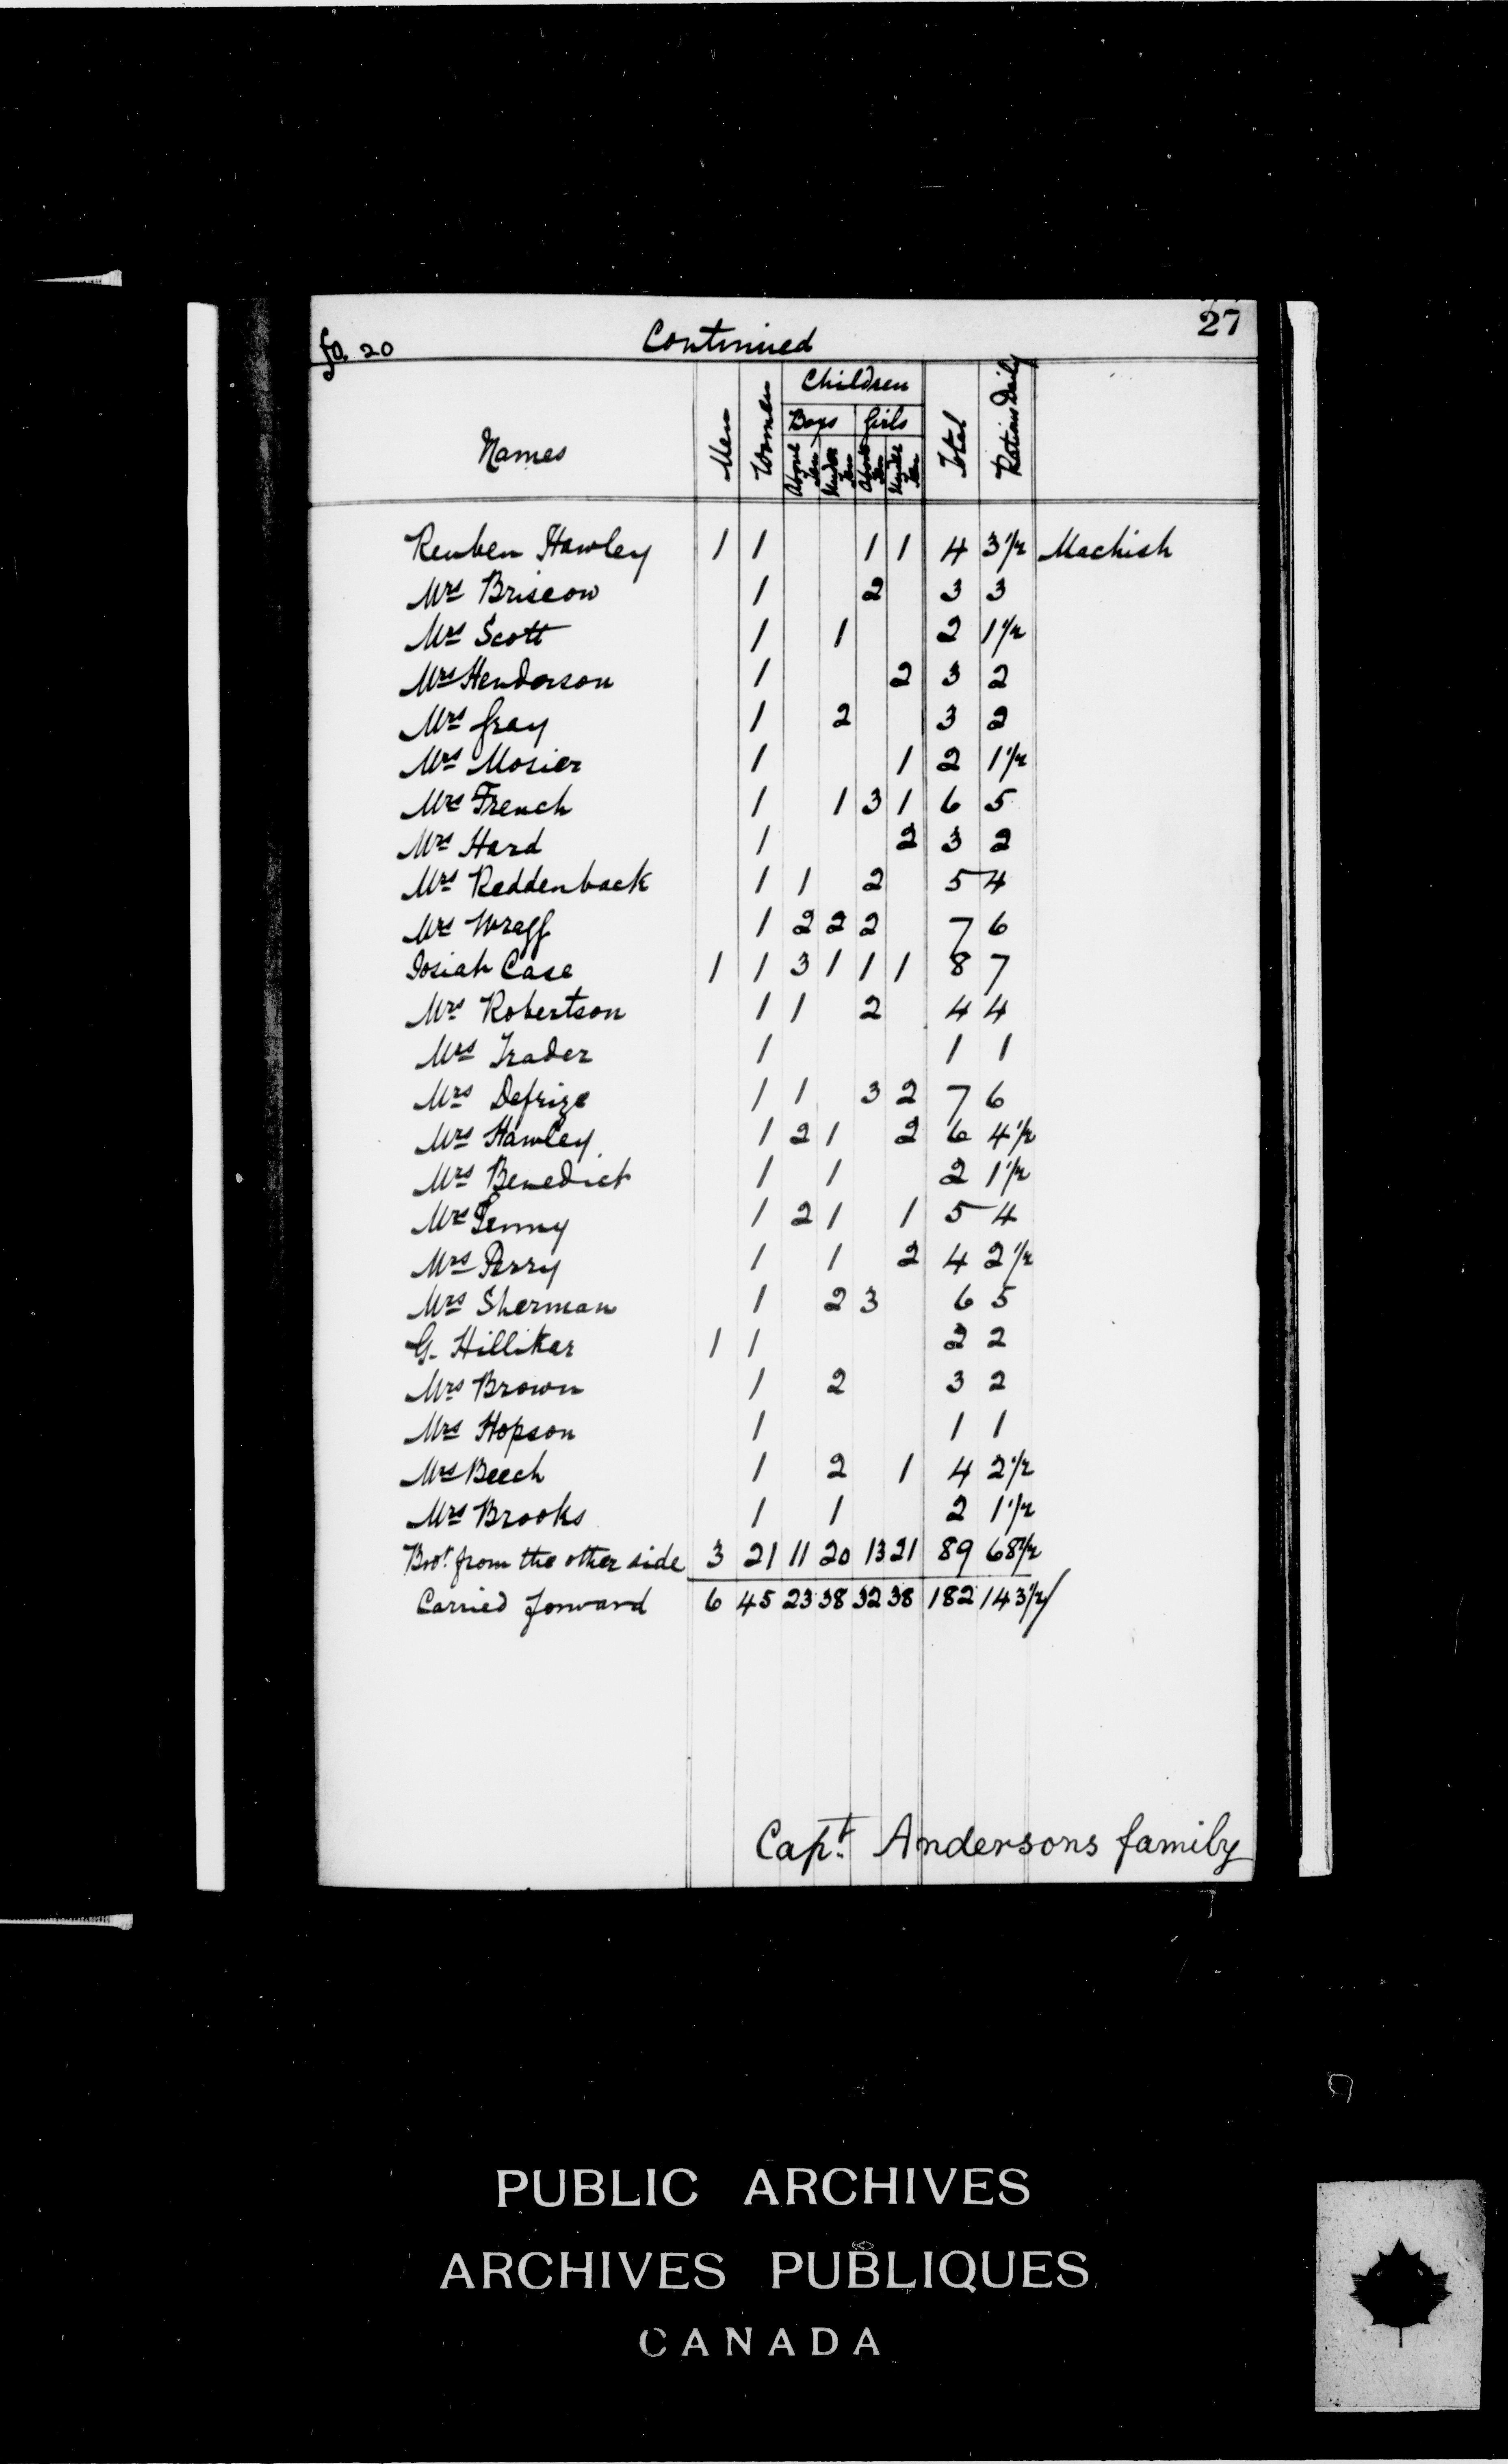 27
fo. 20 Continued
Names Men Women Children Total Rations Daily
Boys Girls
Above ten Under ten Above ten Under ten
Reuben Hawley 1 1 1 1 4 3 1/2 Machish
Mrs Briscow 1 2 3 3
Mrs Scott 1 1 2 1 1/2
Mrs Henderson 1 2 3 2
Mrs Gray 1 2 3 2
Mrs Mosier 1 1 2 1 1/2
Mrs French 1 1 3 1 6 5
Mrs Hard 1 2 3 2
Mrs Reddenback 1 1 2 5 4
Mrs Wragg 1 2 2 2 7 6
Josiah Case 1 1 3 1 1 1 8 7
Mrs Robertson 1 1 2 4 4
Mrs Trader 1 1 1
Mrs Defrize 1 1 3 2 7 6
Mrs Hawley 1 2 1 2 6 4 1/2
Mrs Benedict 1 1 2 1 1/2
Mrs 1 2 1 1 5 4
Mrs Perry 1 1 2 4 2 1/2
Mrs Sherman 1 2 3 6 5
G. Hilliker 1 1 2 2
Mrs Brown 1 2 3 2
Mrs Hopson 1 1 1
Mrs Beech 1 2 1 4 2 1/2
Mrs Brooks 1 1 2 1 1/2
Brot. from the other side 3 21 11 20 13 21 89 68 1/2
Carried forward 6 45 23 38 32 38 182 143 1/2/
Capt. Andersons family
PUBLIC ARCHIVES
ARCHIVES PUBLIQUES
CANADA